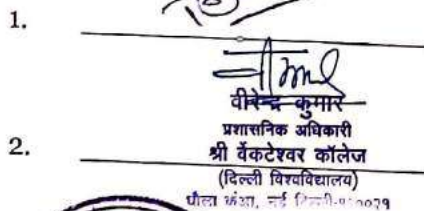 1.
वीरेन्द्र कुमार
प्रशासनिक अधिकारी
2.
श्री वेंकटेश्वर कॉलेज
(दिल्ली विश्वविद्यालय)
धौला कुंआ, नई दिल्ली-110021